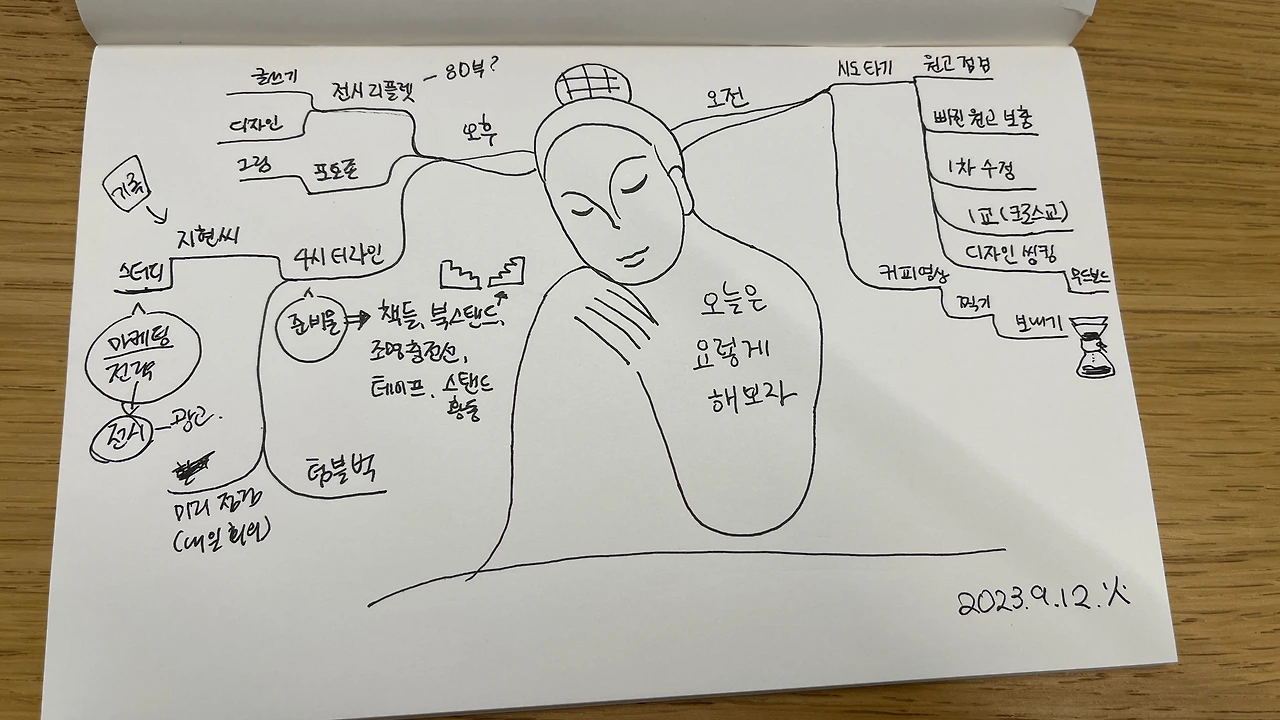 글쓰기
전시 리플렛 - 80부?
디자인
오후
그림
포토존
기록
지현씨
4시 터라인
스터디
마케팅
전략
전시 - 광고.
준비물 ⇒ 책들, 북스탠드,
조명충전선,
테이프, 스탠드
황동
텀블벅
미리 점검
(내일 회의)
오늘은
요렇게
해보자
오전
시도타기
원고 점검
빠진 원고 보충
1차 수정
1교 (크로스교)
디자인 씽킹
무드보드
커피영상
찍기
보내기
2023.9.12.火